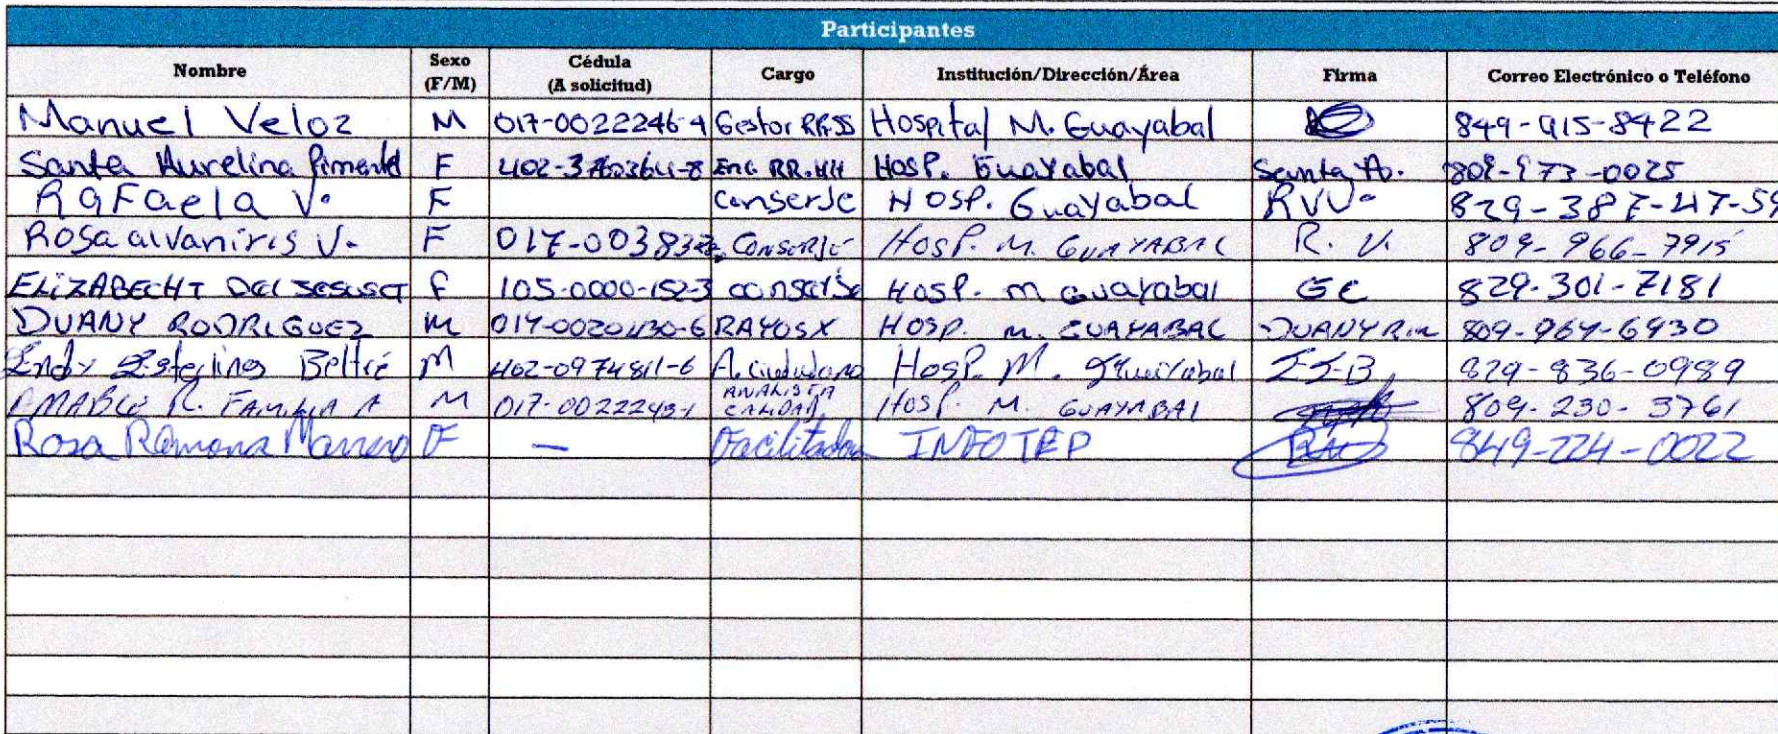 Participantes
Nombre Sexo (F/M) Cédula (A solicitud) Cargo Institución/Dirección/Área Firma Correo Electrónico o Teléfono
Manuel Veloz M 017-0022246-4 Gestor RRSS Hospital M. Guayabal 849-915-8422
Santa Aurelina Pimentel F Enc. RR.HH Hosp. Guayabal Santa A. 809-973-0025
RaFaela V. F Conserje Hosp. Guayabal RVV-
Rosa alvaniris V. F Conserje Hosp. M. Guayabal R. V. 809-966-7915
ELIZABECHT F 105-0000-152-3 conserje Hosp. m Guayabal 829-301-7181
DUANY RODRIGUEZ M RAYOSX Hosp. M. GUAYABAL 809-964-6430
Endy Esterling Beltré M 402-0974811-6 Hosp. M. 829-836-0989
R. Familia A M 017-0022243-1 ANALISTA CALIDAD Hosp. M. GUAYABAL 809-230-3761
Rosa Ramona F — Facilitadora INFOTEP 849-224-0022